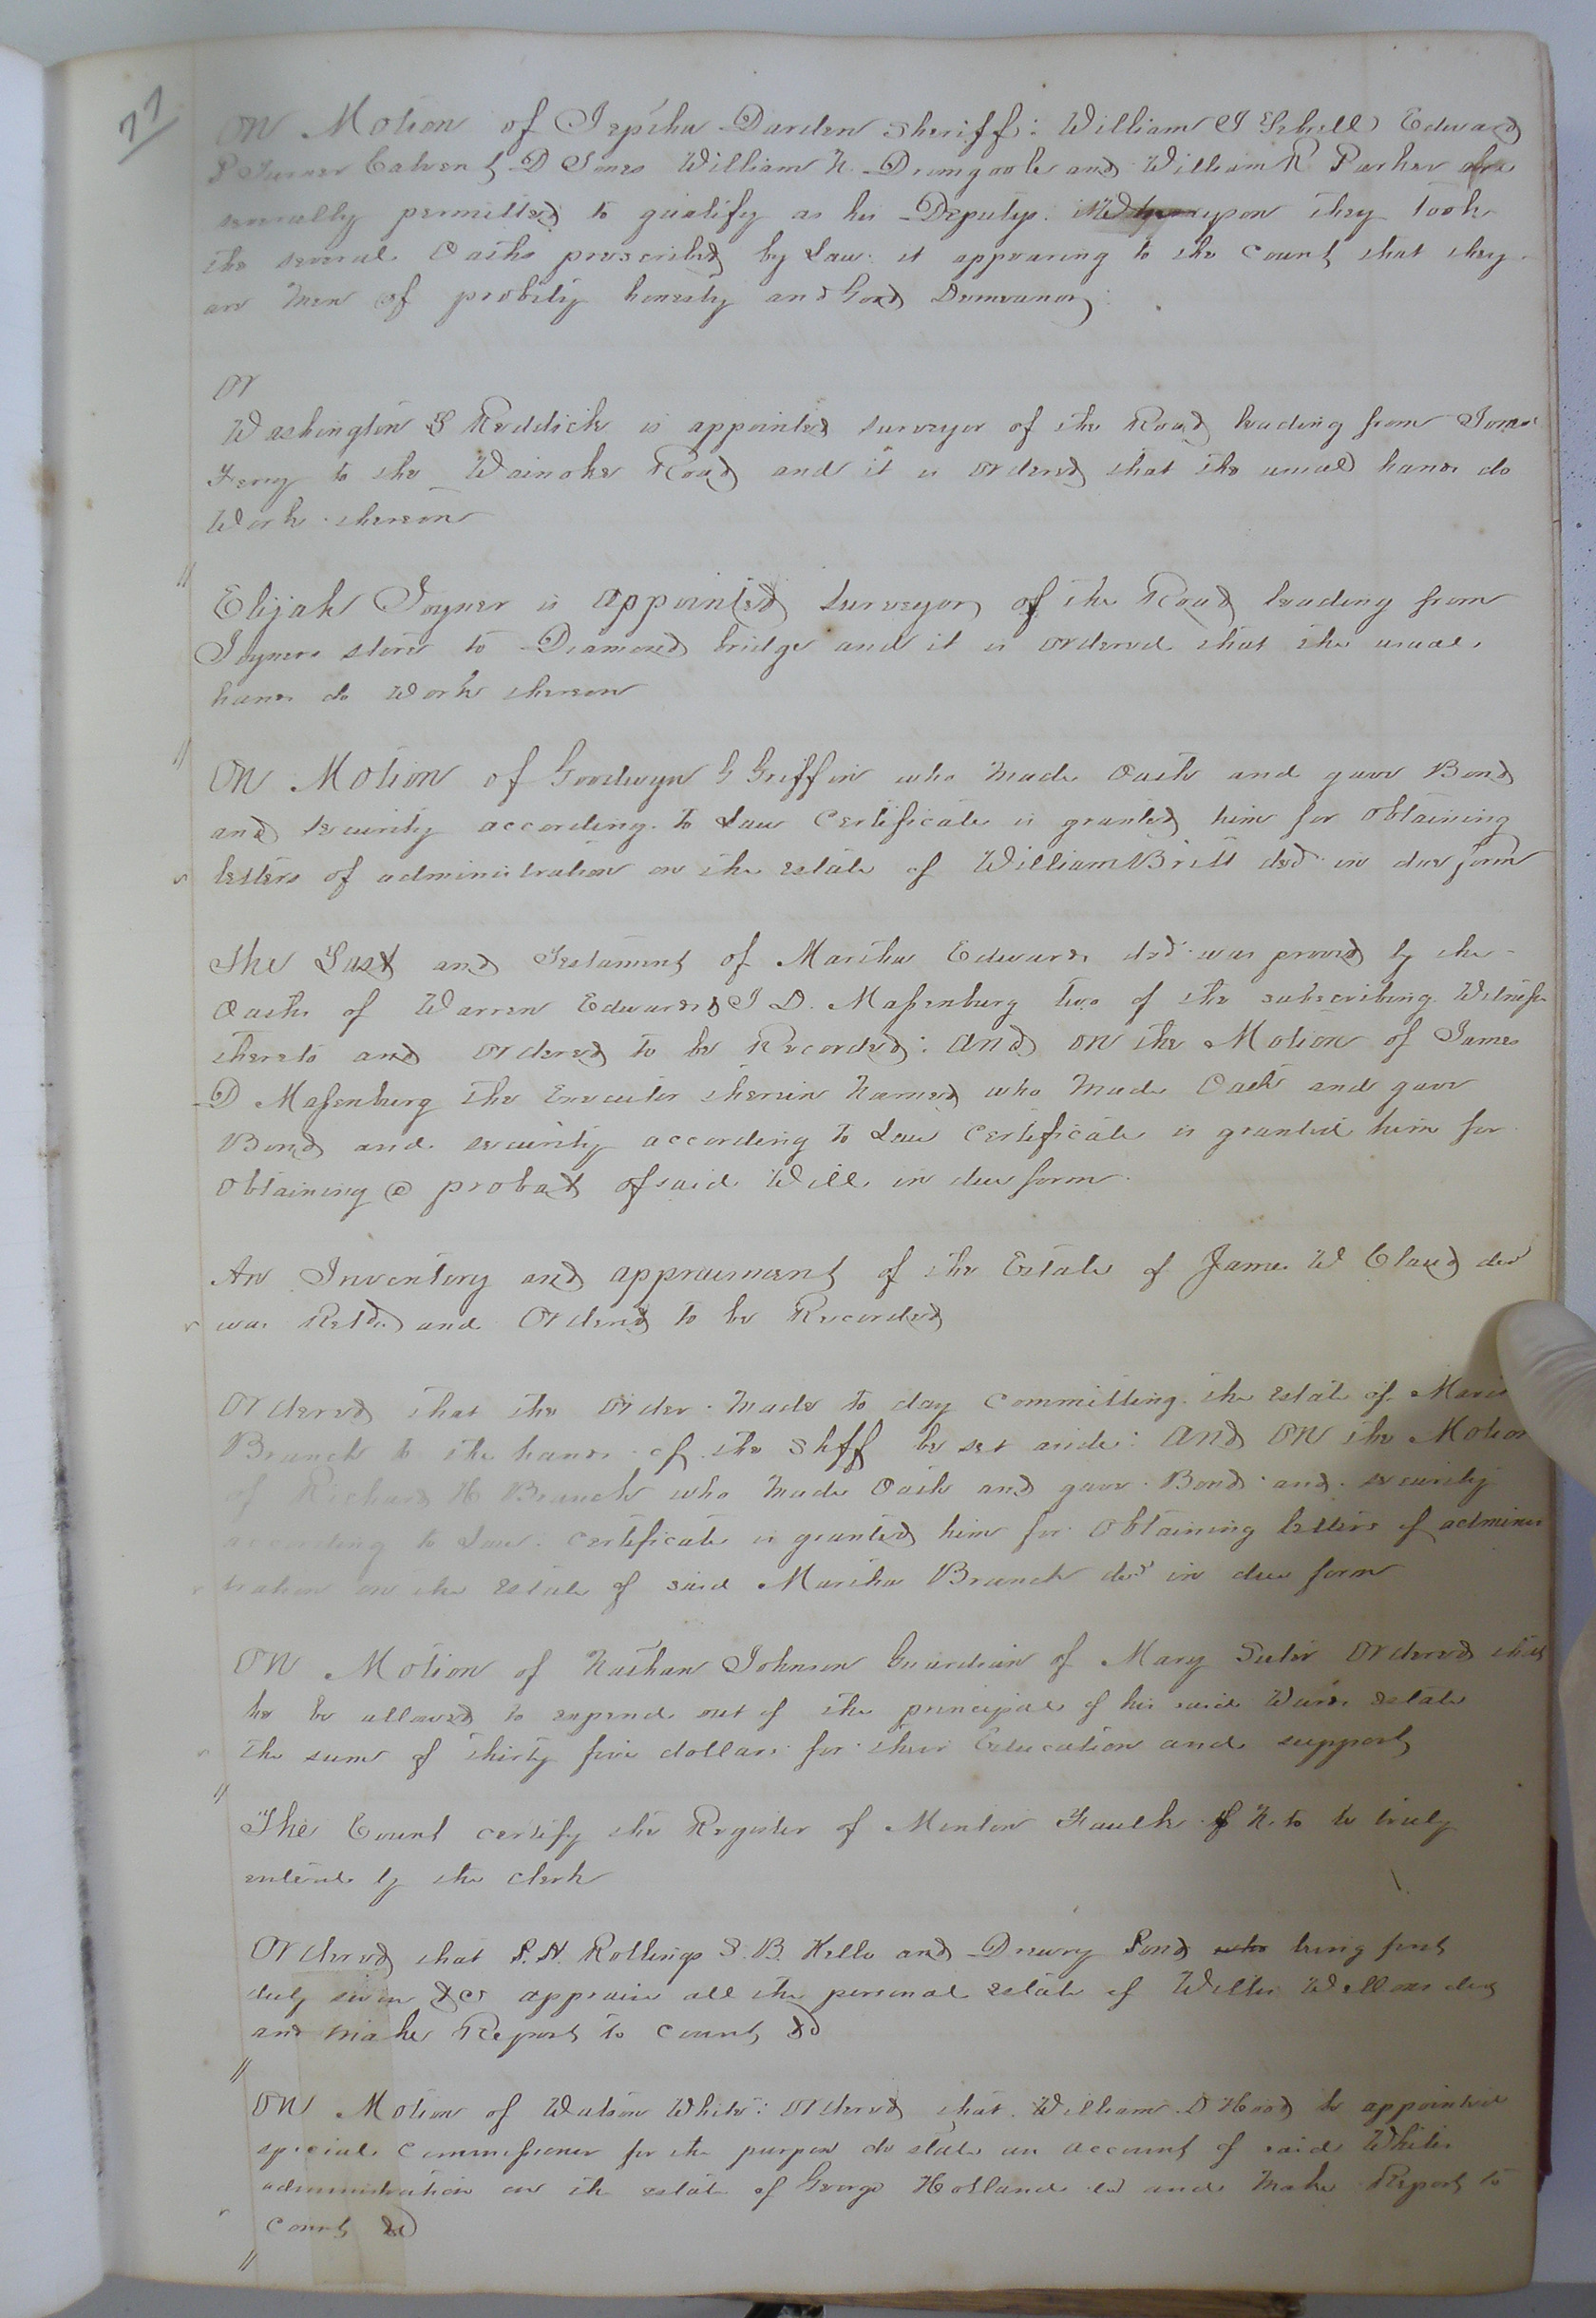 77
On Motion of Jeptha Darden Sheriff: William J Sebrell Edward
Turner Calvert D Jones William N. Drumgoole and William R Parker are
severally permitted to qualify as his Deputys. Whereupon they took
the several Oaths prescribed by Law it appearing to the Court that they
are Men of probity honesty and Good Demeanor:
Or
Washington S Reddick is appointed surveyor of the Road leading from Jones
Ferry to the Wainoke Road and it is ordered that the usual hands do
Work thereon
"
Elijah Joyner is appointed surveyor of the Road leading from
Joyners store to Diamond bridge and it is ordered that the usual
hands do Work thereon
"
On Motion of Goodwyn G Griffin who Made Oath and gave Bond
and security according to Law Certificate is granted him for Obtaining
letters of administration on the estate of William Britt ded in due form
The Last and Testament of Martha Edwards ded was proved by the
Oaths of Warren Edwards & J D. Massenburg two of the subscribing Witness
thereto and ordered to be Recorded: And on the Motion of James
D Massenburg the Executor therein Named who Made Oath and gave
Bond and security according to Law Certificate is granted him for
Obtaining a probat of said Will in due form.
An Inventory and appraisment of the Estate of James W Claud ded
was Retd. and Ordered to be Recorded
Ordered that the order Made to day Committing the estate of
Branch to the hands of the Shff be set aside: And On the Motion
of Richard H Branch who Made Oath and gave Bond and security
according to Law Certificate is granted him for Obtaining letters of adminis
tration on the Estate of said Martha Branch ded in due form
On Motion of Nathan Johnson Guardian of Mary Suter Ordered that
he be allowed to expend out of the principal of his said Wards estate
the sum of thirty five dollars for their Education and support
"
The Court certify the Register of Minton Faulk f N. to be truly
entered by the clerk
Ordered that Rollings S. B. Kello and Drewry Pond who being first
duly sworn &c appraise all the personal estate of Willis Wellons ded
and Make Report to Court &c
"
On Motion of Watson White: Ordered that William D Hood be appointed
special Commissioner for the purpose to state an account of said Whites
administration on the estate of George Holland ded and Make Report to
Court &c
"